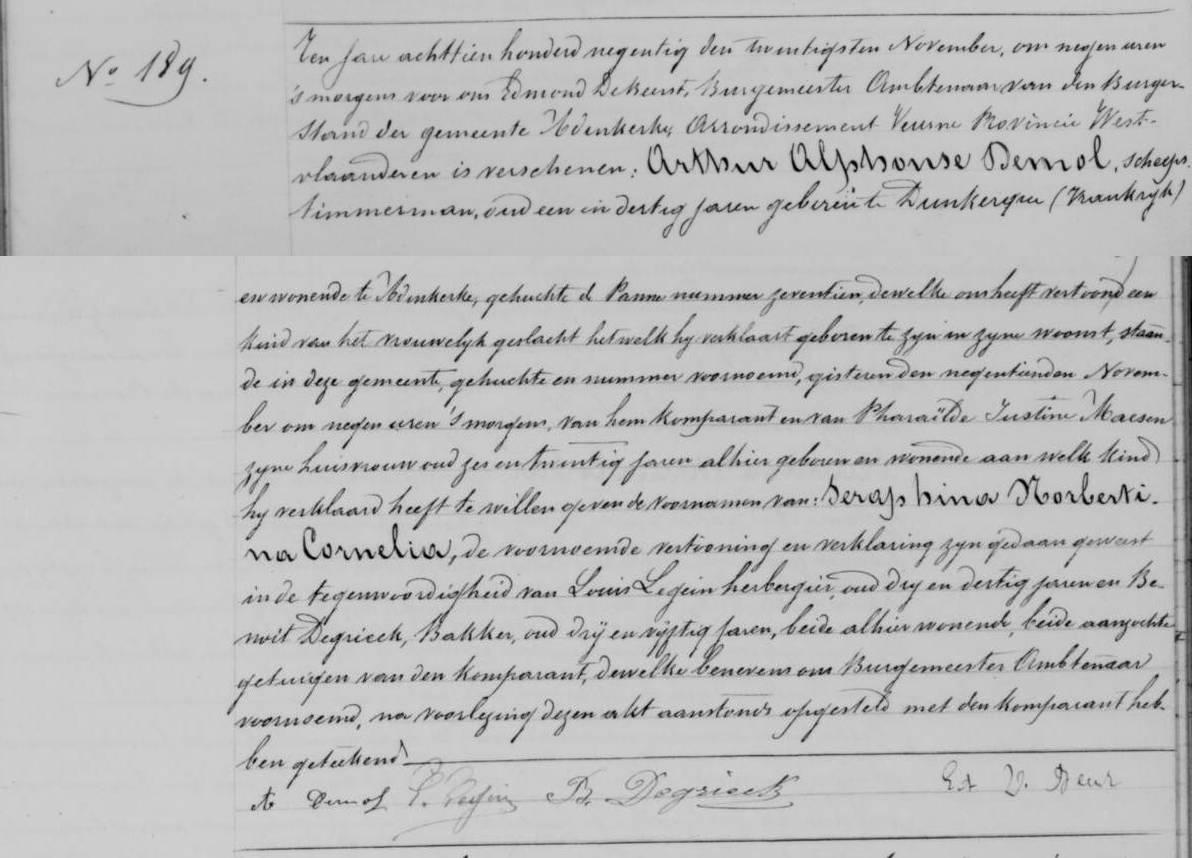 No 189.
Ten jare achttien honderd negentig den twentigsten November, om negen uren
'smorgens voor ons Edmond Dekeerst, Burgemeester Ambtenaar van den Burger-
stand der gemeente Adenkerke, Arrondissement Veurne Provincie West-
vlaanderen is verschenen: Arthur Alphonse Demol, scheeps
timmerman, oud een in dertig jaren geboren te Dunkerque (Vrankryk)
en wonende te Adenkerke, gehuchte de Panne nummer zeventien, dewelke ons heeft vertoond een
kind van het vrouwelyk geslacht hetwelk hy verklaart geboren te zyn in zyne woonst, staan-
de in deze gemeente, gehuchte en nummer voornoemd, gisteren den negentienden Novem-
ber om negen uren 'smorgens, van hem komparant en van Pharaïlde Justine Maesen
zyne huisvrouw oud zes en twintig jaren alhier geboren en wonende aan welk kind
hy verklaard heeft te willen geven de voornamen van: Seraphina Norberti-
na Cornelia, de voornoemde vertooning en verklaring zyn gedaan geweest
in de tegenwoordigheid van Louis Legein herbergier, oud dry en dertig jaren en Be-
noit Degrieck, Bakker, oud dry en vyftig jaren, beide alhier wonende, beide aanzochte
getuigen van den komparant, dewelke benevens ons Burgemeester Ambtenaar
voornoemd, na voorlezing dezen akt aanstonds opgesteld met den komparant heb-
ben geteekend
A Demol L. Legein B. Degrieck